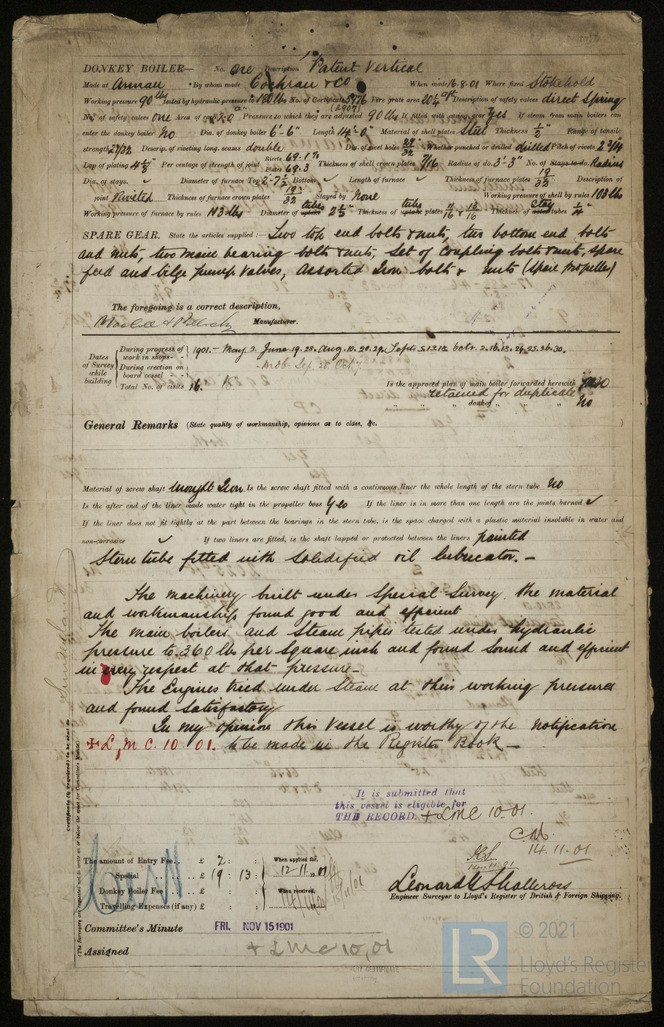 DONKEY BOILER— No. One Description Patent Vertical
Made at Annan By whom made Cochran & Co When made 16.8.01 Where fixed Stokehold
Working pressure 90 lbs tested by hydraulic pressure to 180 lbs No. of Certificate 5976 Fire grate area 20¼ Description of safety valves direct Spring
(2907)
No. of safety valves one Area of each Pressure to which they are adjusted 90 lbs If fitted with easing gear Yes If steam from main boilers can
enter the donkey boiler No Dia. of donkey boiler 6'-6" Length 14'-0" Material of shell plates Steel Thickness ½" Range of tensile
strength 27/32 Descrip. of riveting long. seams double Dia. of rivet holes Whether punched or drilled drilled Pitch of rivets 2 3/4
Lap of plating 4 5/8 Per centage of strength of joint Rivets 69.1% Plates 69.3 Thickness of shell crown plates 9/16 Radius of do. 3'-3" No. of Stays to do. Radius
Dia. of stays. ✓ Diameter of furnace Top 2-7½ Bottom ✓ Length of furnace ✓ Thickness of furnace plates 19/32 Description of
joint Riveted Thickness of furnace crown plates 19/32 Stayed by None Working pressure of shell by rules 103 lbs
Working pressure of furnace by rules 113 lbs Diameter of tubes 2½" Thickness of tube plates Thickness of stay tubes ¼"
SPARE GEAR. State the articles supplied:— Two top end bolts & nuts, two bottom end bolts
and nuts, two main bearing bolts & nuts, Set of Coupling bolts & nuts, Spare
feed and bilge pump valves, Assorted Iron bolts & nuts (Spare Propeller)
The foregoing is a correct description,
Manufacturer.
Dates of Survey while building
During progress of work in shops - - 1901. - May 2. June 19.28. Aug. 10.20.29. Sept. 5.12.18. Octr. 2.16.18.24.25.26.30.
During erection on board vessel - - -
Total No. of visits 16.
Is the approved plan of main boiler forwarded herewith
retained for duplicate
" " " donkey " " " No
General Remarks (State quality of workmanship, opinions as to class, &c.
Material of screw shaft Wrought Iron Is the screw shaft fitted with a continuous liner the whole length of the stern tube No
Is the after end of the liner made water tight in the propeller boss Yes If the liner is in more than one length are the joints burned ✓
If the liner does not fit tightly at the part between the bearings in the stern tube, is the space charged with a plastic material insoluble in water and
non-corrosive ✓ If two liners are fitted, is the shaft lapped or protected between the liners painted
Stern tube fitted with Solidified oil lubricator. -
The machinery built under Special Survey. the material
and workmanship found good and efficient
The main boilers and Steam pipes tested under hydraulic
pressure to 360 lbs per Square inch and found Sound and efficient
in every respect at that pressure -
The Engines tried under Steam at their working pressure
and found satisfactory
In my opinion this Vessel is worthy of the Notification
+ L.M.C. 10.01. to be made in the Register Book —
It is submitted that
this vessel is eligible for
THE RECORD. + LMC 10.01
14.11.01
The amount of Entry Fee . . £ 2 : : When applied for.
Special . . . . . £ 19 : 13 : 12.11.01
Donkey Boiler Fee . . . £ : : When received.
Travelling Expenses (if any) £ : :
Leonard G Shallcross
Engineer Surveyor to Lloyd's Register of British & Foreign Shipping.
Committee's Minute FRI. NOV 15 1901
Assigned + LMC 10.01
LR
© 2021
Lloyd's Register
Foundation